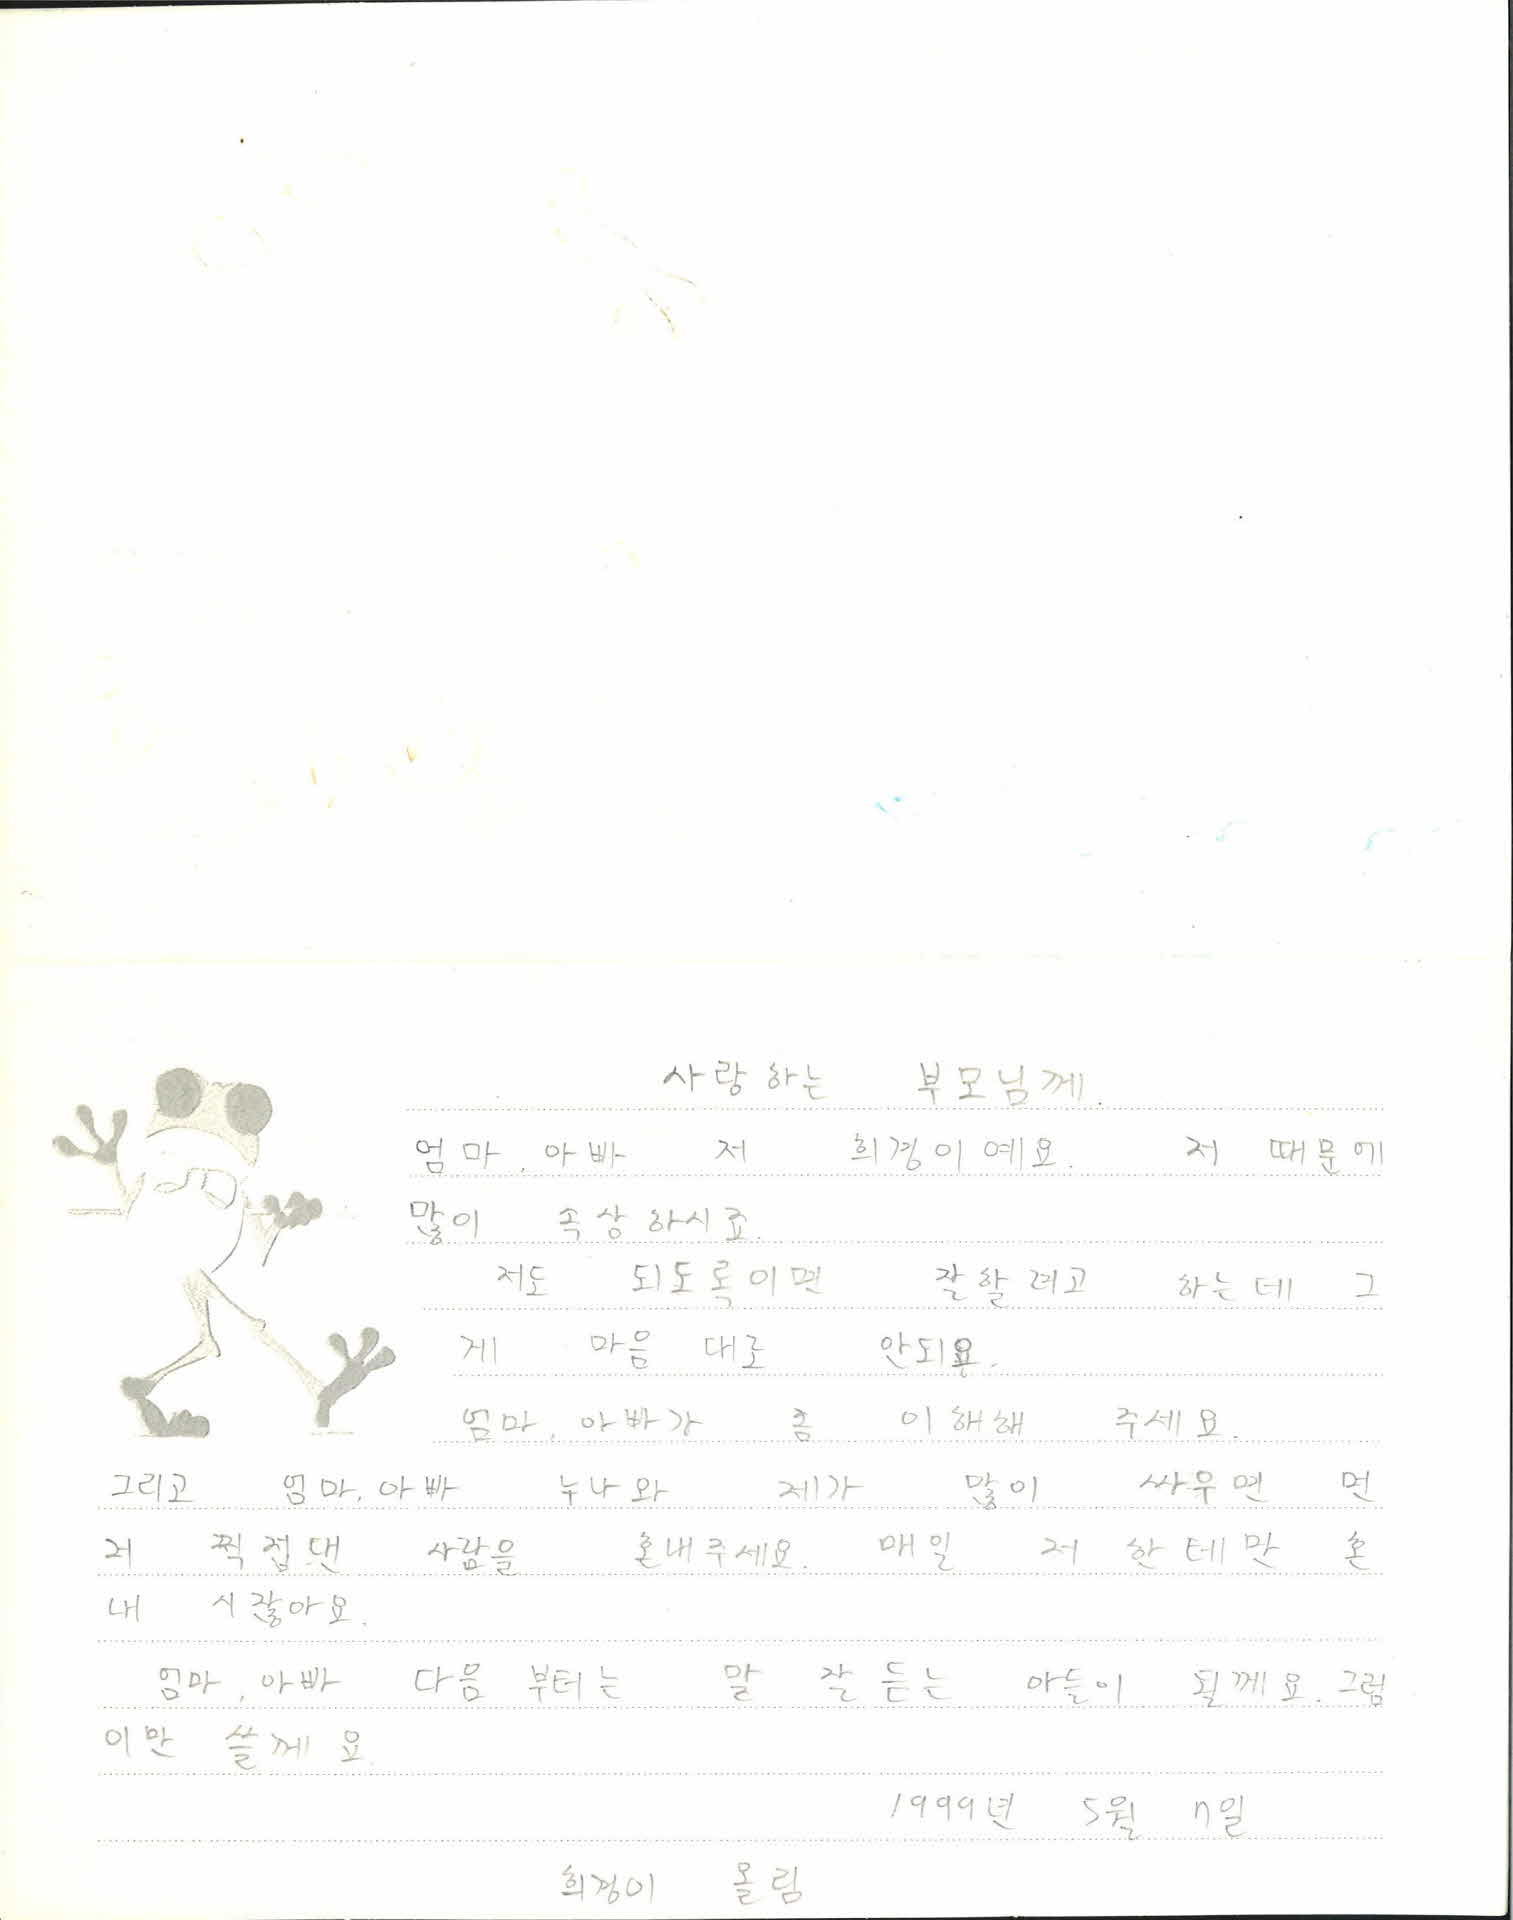 사랑하는 부모님께.
엄마, 아빠 저 희경이예요. 저 때문에
많이 속상하시죠.
저도 되도록이면 잘할려고 하는데 그
게 마음 대로 안되요.
엄마, 아빠가 좀 이해해 주세요.
그리고 엄마, 아빠 누나와 제가 많이 싸우면 먼
저 찍접댄 사람을 혼내주세요. 매일 저 한테만 혼
내 시잖아요.
엄마, 아빠 다음 부터는 말 잘 듣는 아들이 될께요. 그럼
이만 쓸께요.
1999년 5월 7일
희경이 올림